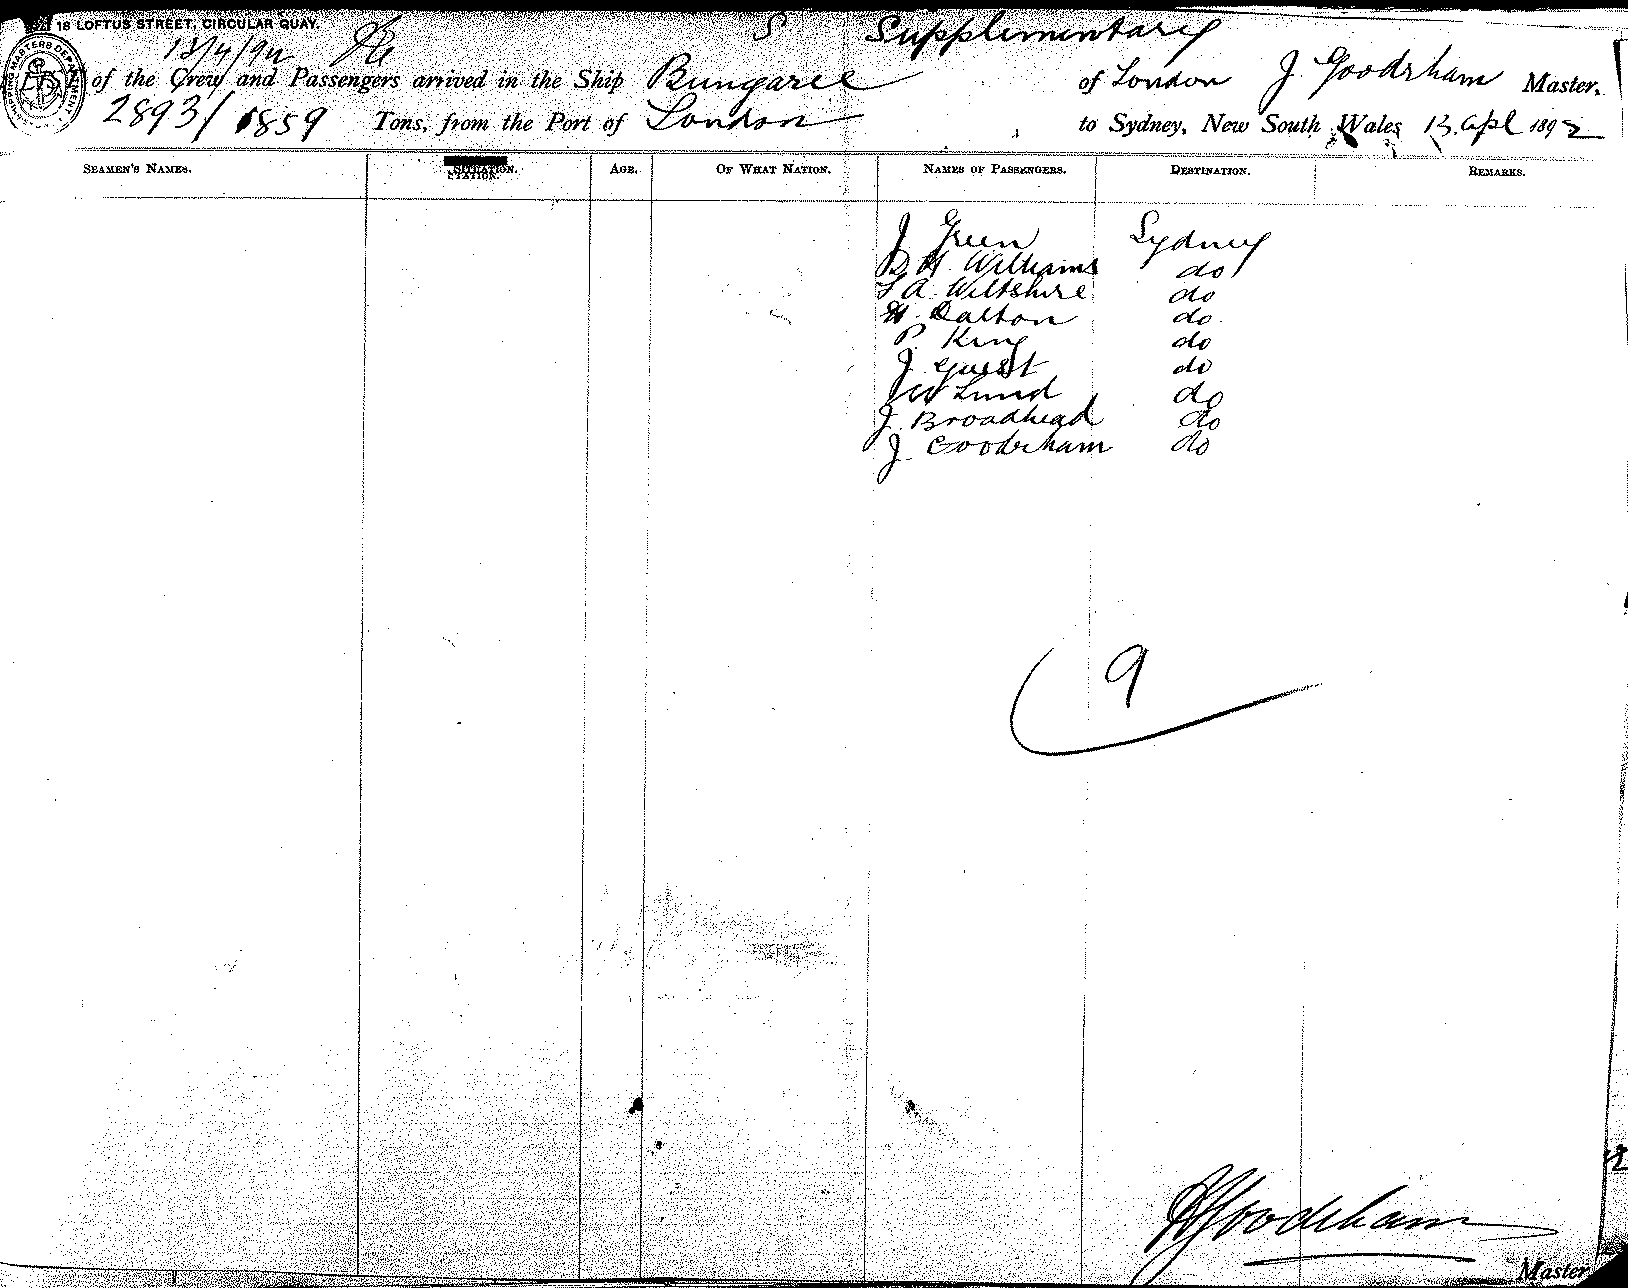 18 LOFTUS STREET, CIRCULAR QUAY.
S Supplementary
13/4/92
of the Crew and Passengers arrived in the Ship Bungaree of London J Gooderham Master,
2893/1859 Tons, from the Port of London to Sydney, New South Wales 13 Apl 1892
SEAMEN'S NAMES. STATION. AGE. OF WHAT NATION. NAMES OF PASSENGERS. DESTINATION. REMARKS.
J Green Sydney
D H Williams do
A Wiltshire do
H Dalton do
P King do
J Guest do
W Lund do
J Broadhead do
J Gooderham do
9
J Gooderham
Master